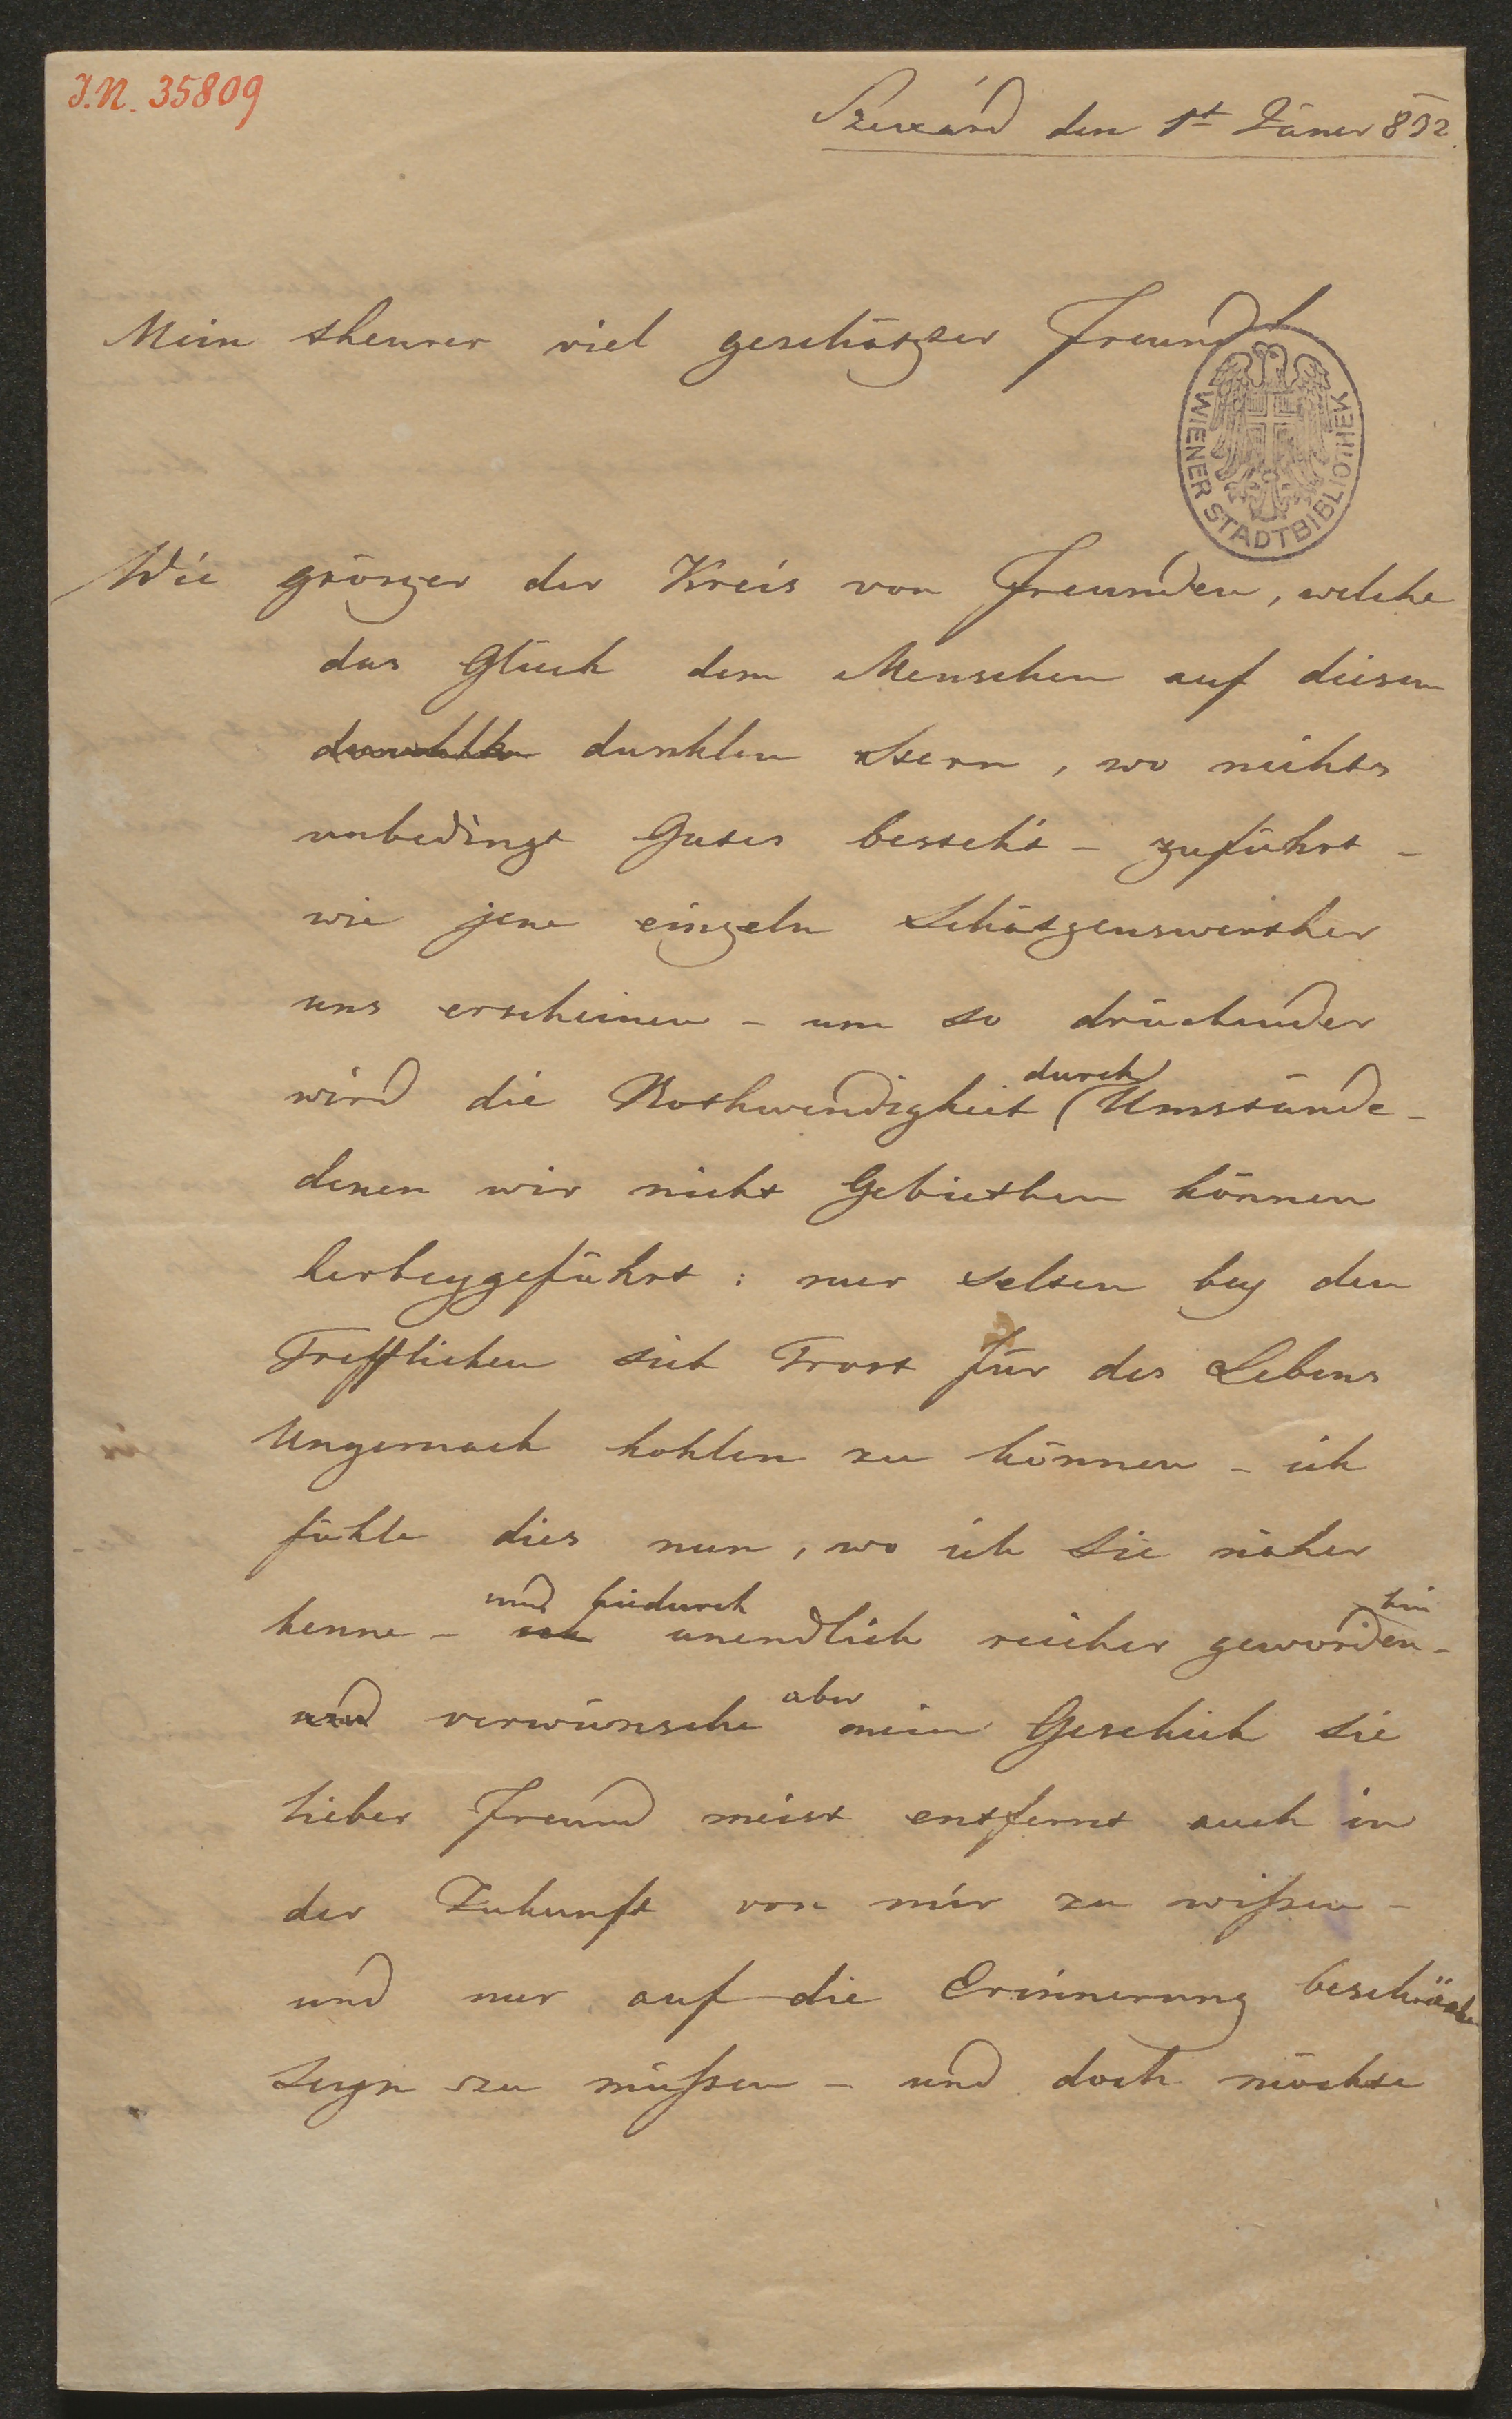 I.N. 35809
Szexárd den 1t Jäner 852.
Mein theurer viel geschätzter Freund!
WIENER STADTBIBLIOTHEK
Wie gröszer der Kreis von Freunden, welche
das Glück dem Menschen auf diesem
dunklen Stern, wo nichts
unbedingt Gutes besteht – zuführt –
wie jene einzeln Schätzenswerther
uns erscheinen – um so drückender
wird die Nothwendigkeit (durch Umstände –
denen wir nicht Gebiethen können
herbeygeführt: nur selten bey den
Trefflichen sich Trost für des Lebens
Ungemach hohlen zu können – ich
fühle dies nun, wo ich Sie näher
kenne – und hiedurch unendlich reicher geworden bin –
und verwünsche aber mein Geschick Sie
lieber Freund meist entfernt auch in
der Zukunft von mir zu wißen –
und nur auf die Erinnerung beschränkt
seyn zu müßen – und doch möchte